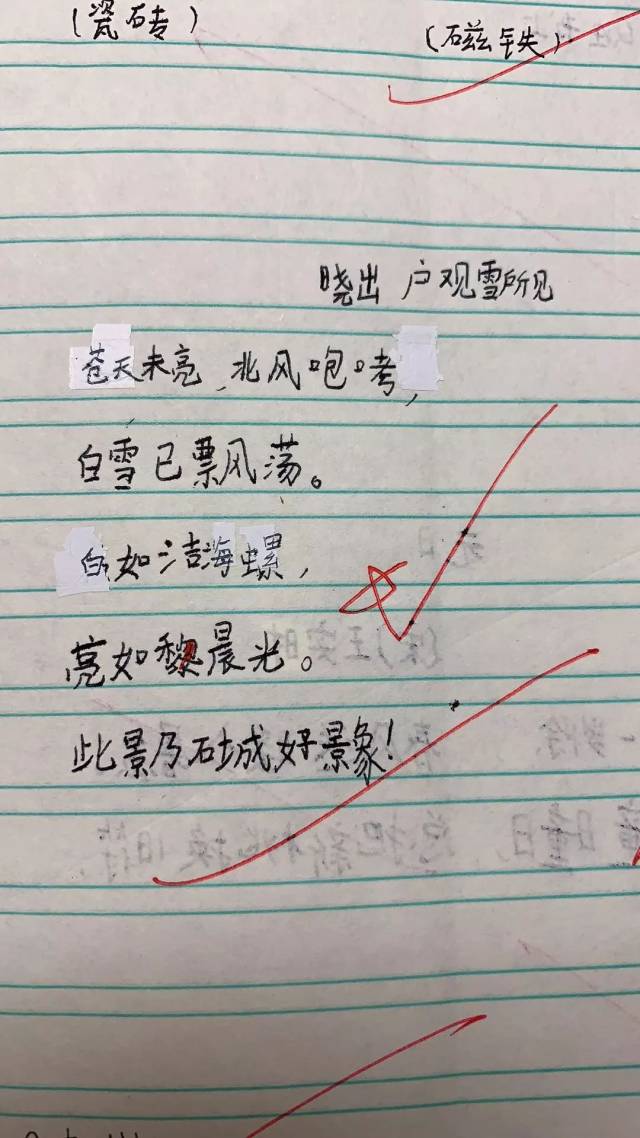 (瓷砖) (磁铁)
晓出户观雪所见
苍天未亮,北风咆哮,
白雪已票风荡。
白如洁海螺,
亮如黎晨光。
此景乃砫城好景象!